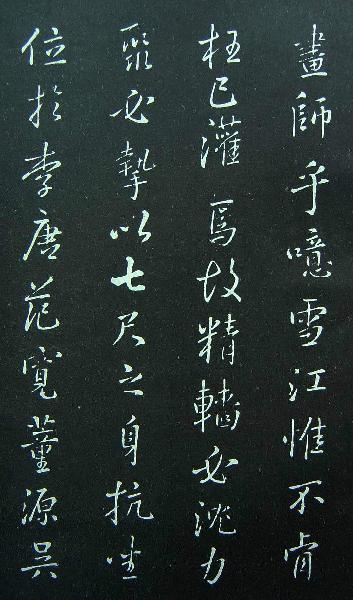 畫師乎噫雪江惟不肯
枉己灌焉故精轖必沈力
聚必摯以七尺之身抗坐
位於李唐范寬董源吳